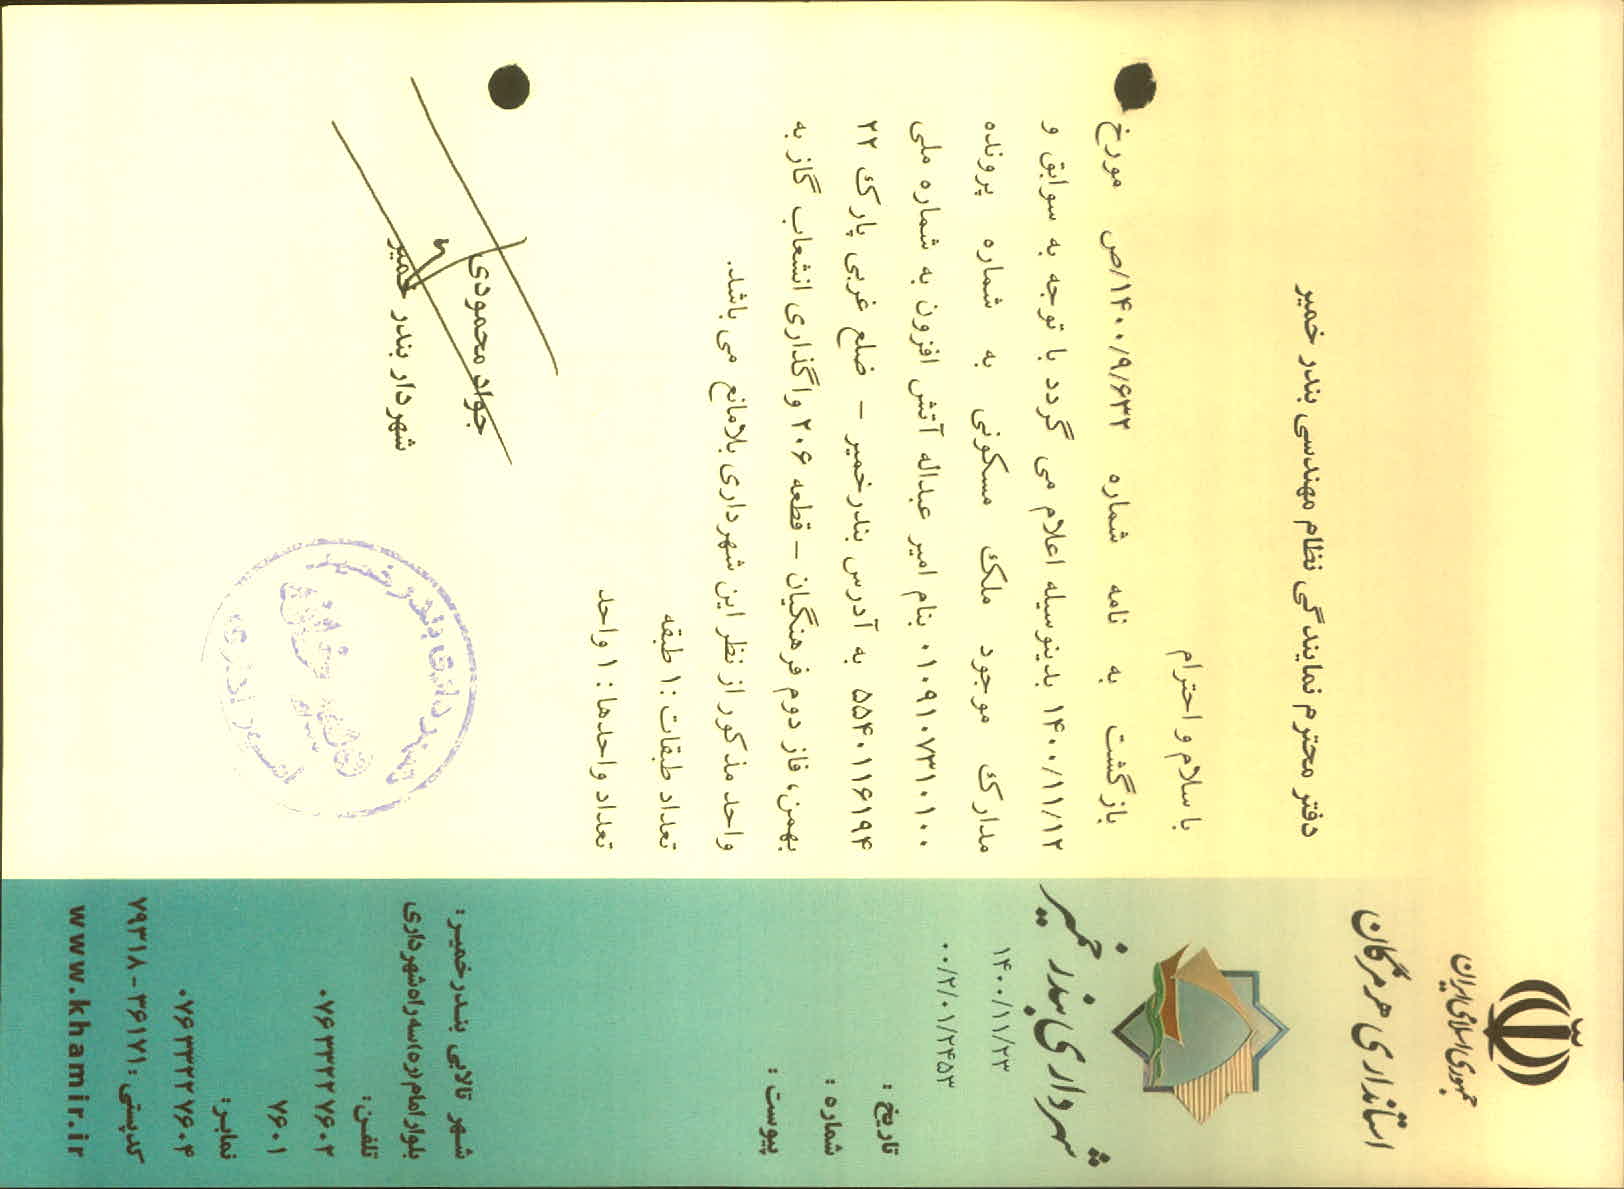 جمهوری اسلامی ایران
استانداری هرمزگان
شهرداری بندر خمیر
۱۴۰۰/۱۱/۲۳
۰۰/۲/۰۱/۲۴۵۳
تاریخ :
شماره :
پیوست :
دفتر محترم نمایندگی نظام مهندسی بندر خمیر
با سلام و احترام
بازگشت به نامه شماره ۱۴۰۰/۹/۶۳۲/ص مورخ
۱۴۰۰/۱۱/۱۲ بدینوسیله اعلام می گردد با توجه به سوابق و
مدارک موجود ملک مسکونی به شماره پرونده
۰۱۰۹۱۰۷۳۱۰۱۰۰ بنام امیر عبداله آتش افزون به شماره ملی
۵۵۴۰۱۱۶۱۹۴ به آدرس بندرخمیر – ضلع غربی پارک ۲۲
بهمن، فاز دوم فرهنگیان – قطعه ۲۰۶ واگذاری انشعاب گاز به
واحد مذکور از نظر این شهرداری بلامانع می باشد.
تعداد طبقات :۱ طبقه
تعداد واحدها : ۱ واحد
جواد محمودی
شهردار بندر خمیر
شهرداری بندر خمیر
شهر تالابی بندرخمیر:
بلوار امام (ره) سه راه شهرداری
تلفن:
۰۷۶۳۳۲۲۷۶۰۲
۷۶۰۱
نمابر:
۰۷۶۳۳۲۲۷۶۰۴
کدپستی : ۳۶۱۷۱ - ۷۹۳۱۸
www.khamir.ir